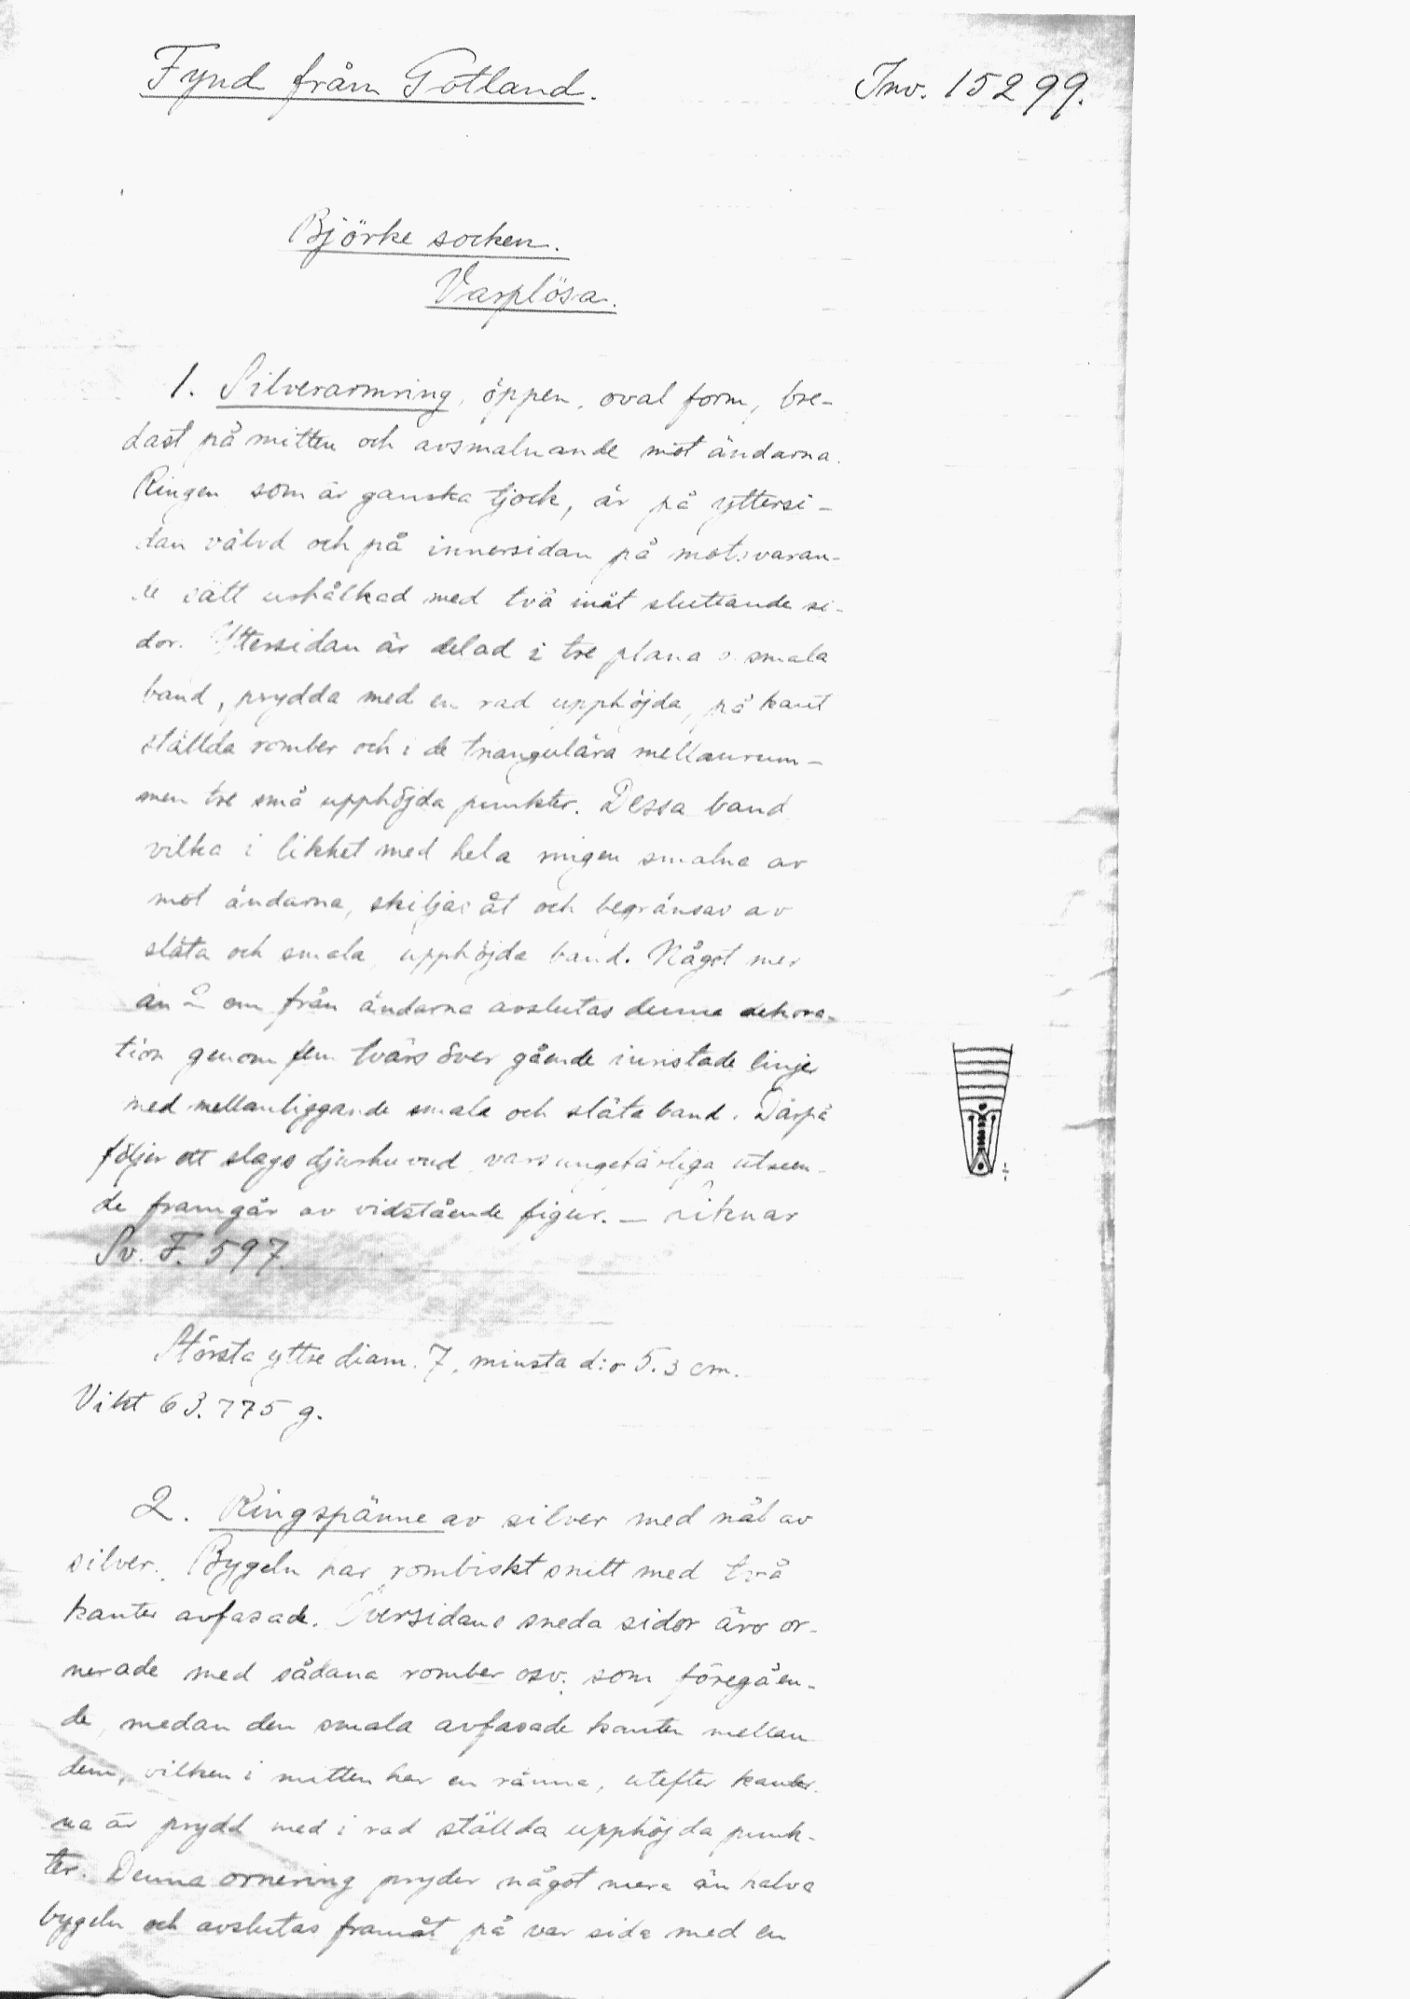 Fynd från Gotland.
Inv. 15299.
Björke socken.
Varplösa.
1. Silverarmring, öppen, oval form, bre-
dast på mitten och avsmalnande mot ändarna.
Ringen som är ganska tjock, är på yttersi-
dan välvd och på innersidan på motsvaran-
de sätt urhålkad med två inåt sluttande si-
dor. Yttersidan är delad i tre plana o. smala
band, prydda med en rad upphöjda, på kant
ställda romber och i de triangulära mellanrum-
men tre små upphöjda punkter. Dessa band
vilka i likhet med hela ringen smalna av
mot ändarna, skiljas åt och begränsas av
släta och smala, upphöjda band. Något mer
än 2 cm från ändarna avslutas denna dekora-
tion genom fem tvärs över gående inristade linjer
med mellanliggande smala och släta band. Därpå
följer ett slags djurhuvud, vars ungefärliga utseen-
de framgår av vidstående figur. — Liknar
Sv. F. 597.
1/1
Största yttre diam. 7, minsta d:o 5.3 cm.
Vikt 63.775 g.
2. Ringspänne av silver med nål av
silver. Bygeln har rombiskt snitt med två
kanter avfasade. Översidans sneda sidor äro or-
nerade med sådana romber osv. som föregåen-
de, medan den smala avfasade kanten mellan
dem, vilken i mitten har en ränna, utefter kanter-
na är prydd med i rad ställda upphöjda punk-
ter. Denna ornering pryder något mera än halva
bygeln och avslutas framåt på var sida med en